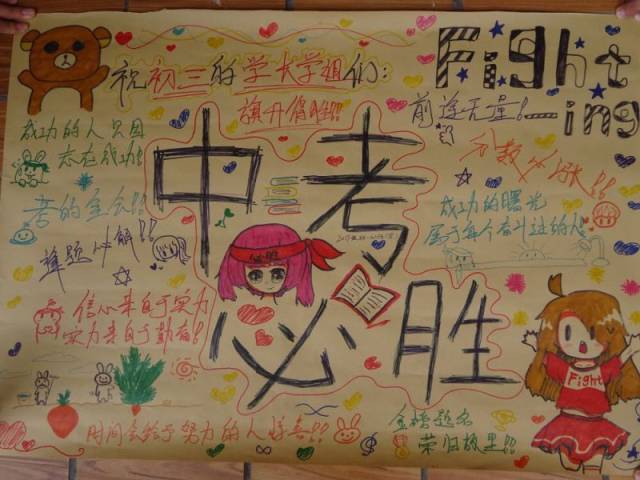 祝初三的学长学姐们：
旗开得胜!!
Fight
ing
前途无量!
分数必涨!!
成功的人只因
志在成功!!
中考
必胜
考的全会!!
难题必解!!
成功的曙光
属于每个奋斗过的人
信心来自于实力
实力来自于勤奋!!
Fight
时间会给予努力的人惊喜!!
金榜题名
荣归故里!!